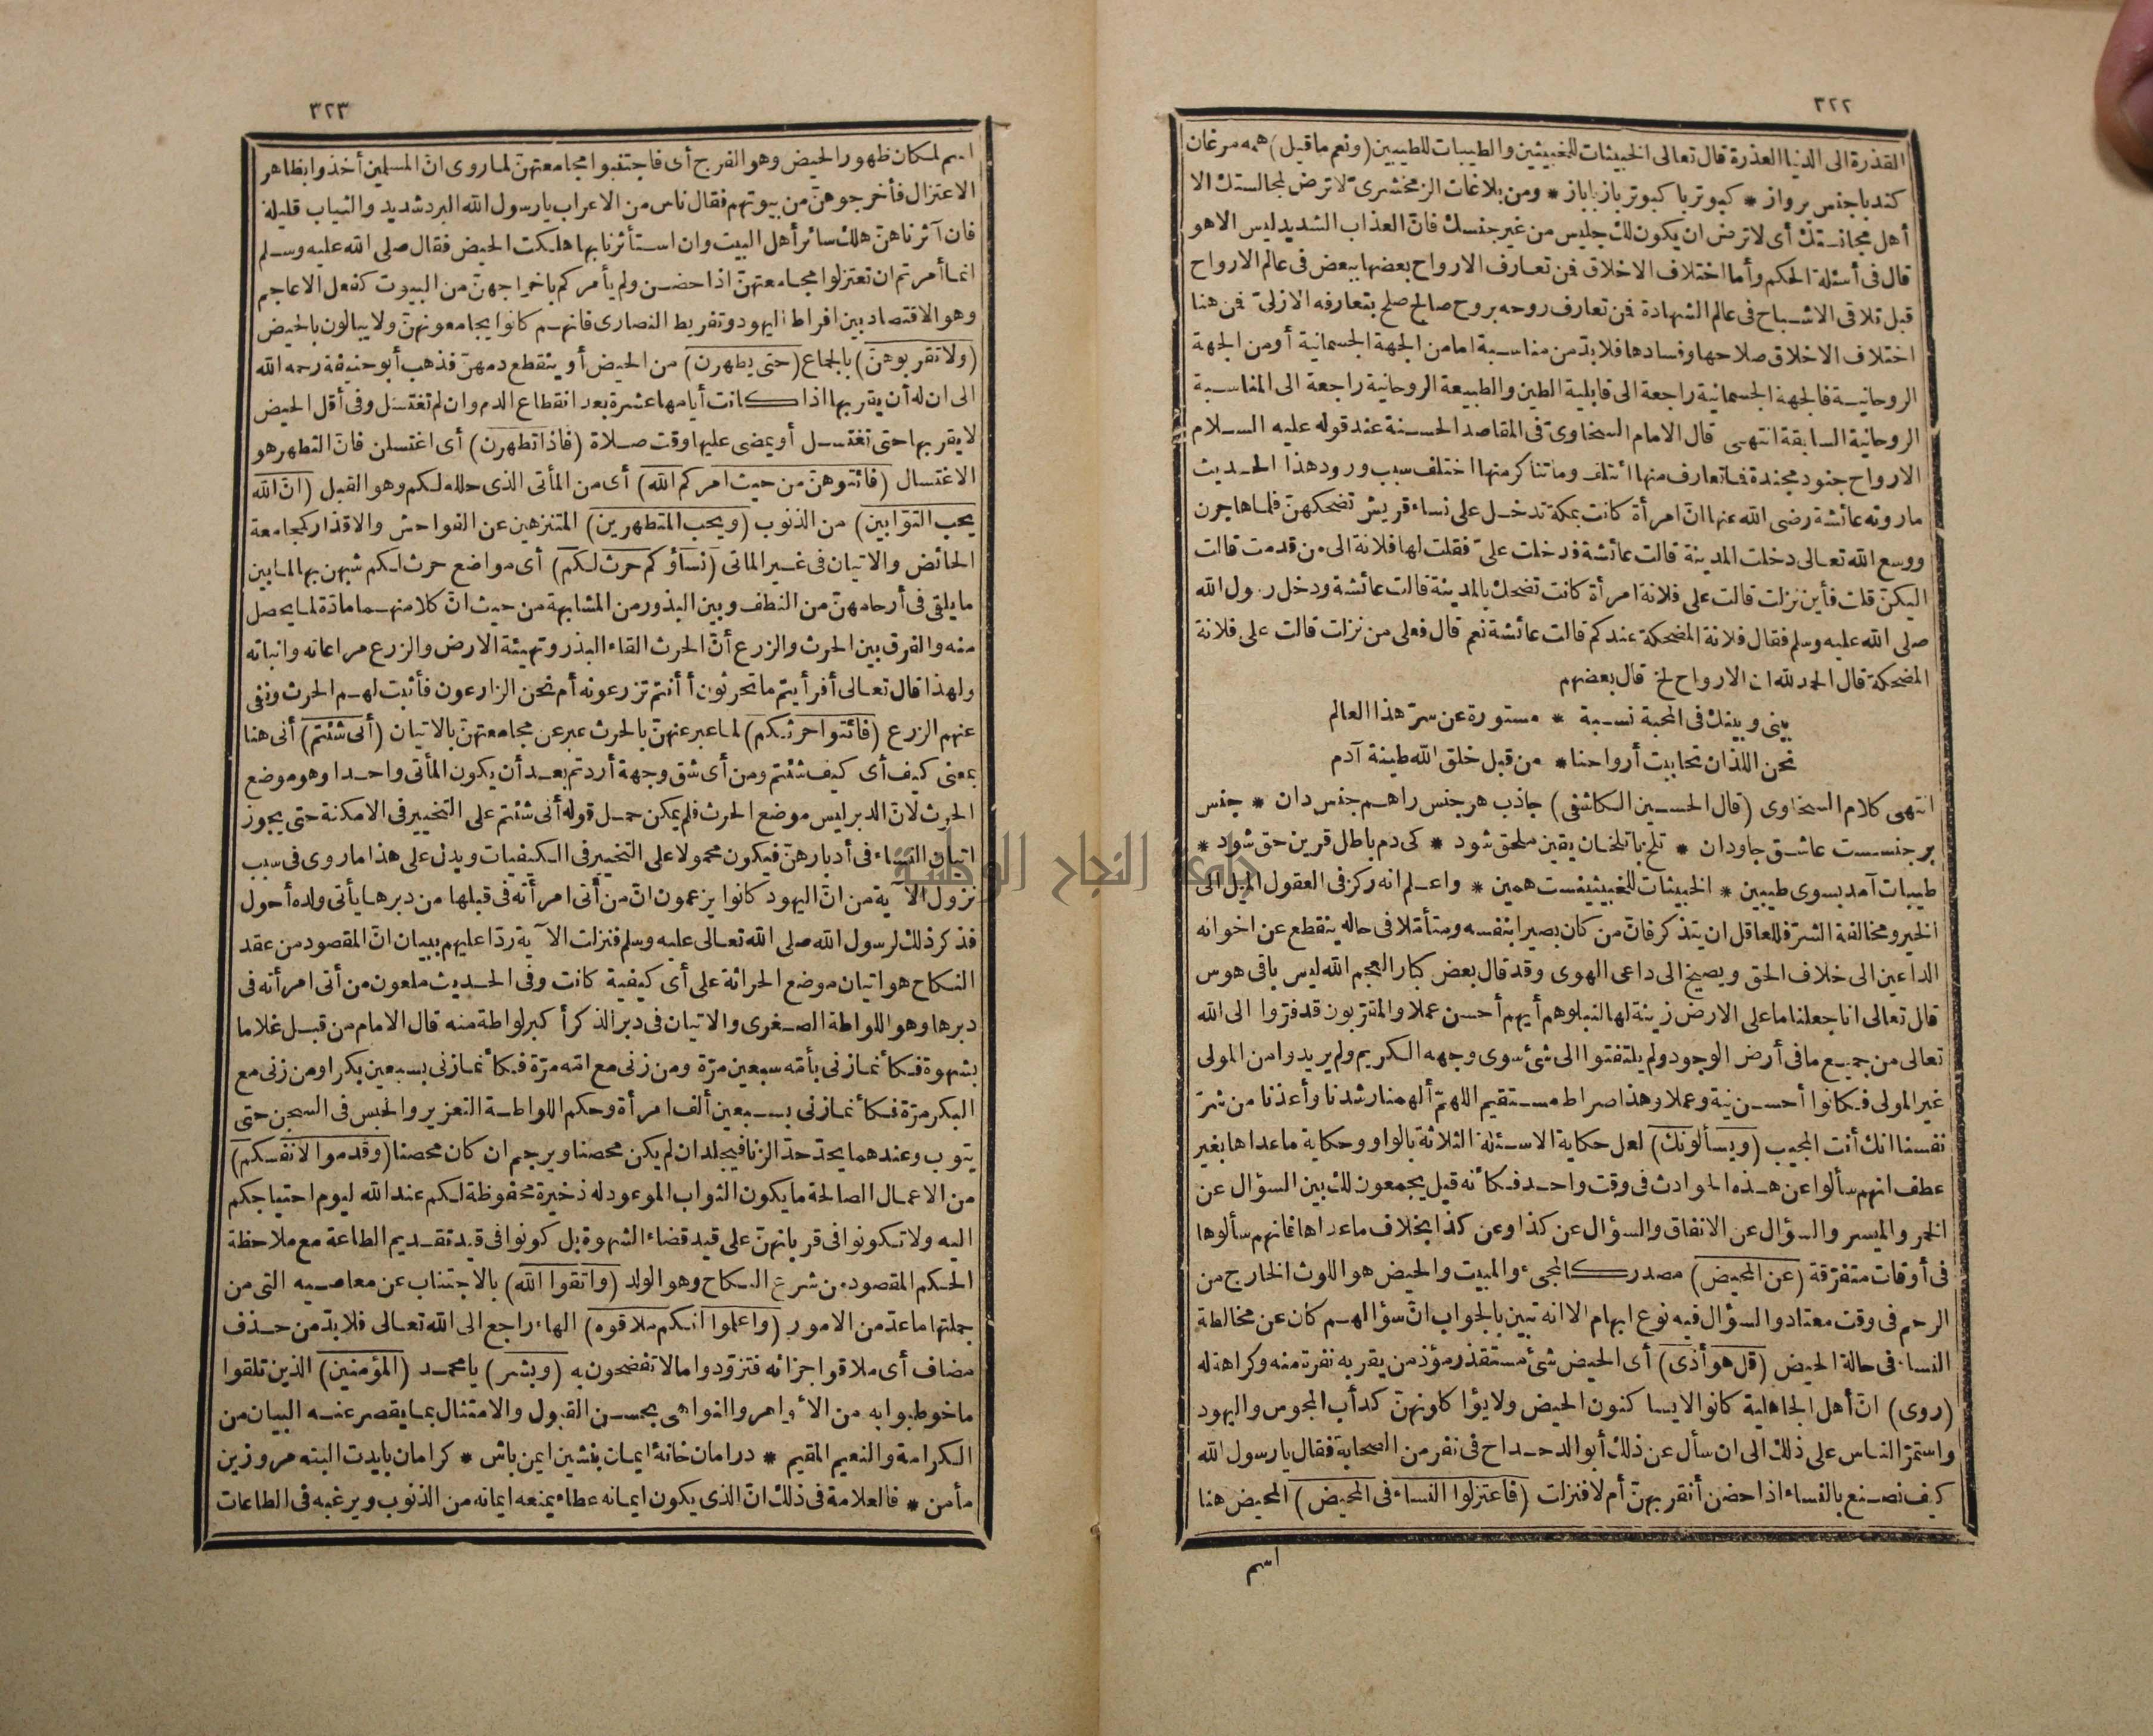 ٣٢٢
القذرة الى الدنيا العذرة قال تعالى الخبيثات للخبيثين والطيبات للطيبين (ونعم ما قيل) همه مرغان
كند با جنس پرواز * كبوتر با كبوتر باز باباز * ومن بلاغات الزمخشرى لا ترض لمجالستك الا
أهل مجانستك أى لا ترض ان يكون لك جليس من غير جنسك فان العذاب الشديد ليس الا هو
قال فى أسئلة الحكم وأما اختلاف الاخلاق فمن تعارف الارواح بعضها ببعض فى عالم الارواح
قبل تلاقى الاشباح فى عالم الشهادة فمن تعارف روحه بروح صالح صلح بتعارفه الازلىّ فمن هنا
اختلاف الاخلاق صلاحها وفسادها فلا بدّ من مناسبة اما من الجهة الجسمانية أو من الجهة
الروحانية فالجهة الجسمانية راجعة الى قابلية الطين والطبيعة الروحانية راجعة الى المناسبة
الروحانية السابقة انتهى قال الامام السخاوىّ فى المقاصد الحسنة عند قوله عليه السلام
الارواح جنود مجندة فما تعارف منها ائتلف وما تناكر منها اختلف سبب ورود هذا الحديث
ما روته عائشة رضى الله عنها انّ امرأة كانت بمكة تدخل على نساء قريش تضحكهنّ فلما هاجرن
ووسع الله تعالى دخلت المدينة قالت عائشة فدخلت علىّ فقلت لها فلانة الى من قدمت قالت
اليكنّ قلت فأين نزلت قالت على فلانة امرأة كانت تضحك بالمدينة قالت عائشة ودخل رسول الله
صلى الله عليه وسلم فقال فلانة المضحكة عندكم قالت عائشة نعم قال فعلى من نزلت قالت على فلانة
المضحكة قال الحمد لله ان الارواح الخ قال بعضهم
بينى وبينك فى المحبة نسبة * مستورة عن سرّ هذا العالم
نحن اللذان تحاببت أرواحنا * من قبل خلق الله طينة آدم
انتهى كلام السخاوى (قال الحسين الكاشفى) جاذب هر جنس راهم جنس دان * جنس
بر جنسست عاشق جاودان * تلخ با تلخان يقين ملحق شود * كى دم باطل قرين حق شود *
طيبات آمد بسوى طيبين * الخبيثات للخبيثينست همين * واعلم انه ركز فى العقول الميل الى
الخير ومخالفة الشرّ فللعاقل ان يتذكر فان من كان بصيرا بنفسه ومتأملا فى حاله ينقطع عن اخوانه
الداعين الى خلاف الحق ويصيخ الى داعى الهوى وقد قال بعض كبار العجم الله ليس باقى هوس
قال تعالى انا جعلنا ما على الارض زينة لها لنبلوهم أيهم أحسن عملا والمقرّبون قد فرّوا الى الله
تعالى من جميع ما فى أرض الوجود ولم يلتفتوا الى شئ سوى وجهه الكريم ولم يريدوا من المولى
غير المولى فكانوا أحسن نية وعملا وهذا صراط مستقيم اللهمّ ألهمنا رشدنا وأعذنا من شرّ
نفسنا انك أنت المجيب (ويسألونك) لعل حكاية الاسئلة الثلاثة بالواو وحكاية ما عداها بغير
عطف انهم سألوا عن هذه الحوادث فى وقت واحد فكأنه قيل يجمعون لك بين السؤال عن
الخمر والميسر والسؤال عن الانفاق والسؤال عن كذا وعن كذا بخلاف ما عداها فانهم سألوها
فى أوقات متفرّقة (عن المحيض) مصدر كالمجىء والمبيت والحيض هو اللوث الخارج من
الرحم فى وقت معتاد والسؤال فيه نوع ابهام الا انه تبين بالجواب انّ سؤالهم كان عن مخالطة
النساء فى حالة الحيض (قل هو أذى) أى الحيض شئ مستقذر مؤذ من يقربه نفرة منه وكراهة له
(روى) انّ أهل الجاهلية كانوا لا يساكنون الحيض ولا يؤاكلونهنّ كدأب المجوس واليهود
واستمرّ الناس على ذلك الى ان سأل عن ذلك أبو الدحداح فى نفر من الصحابة فقال يا رسول الله
كيف نصنع بالنساء اذا حضن أنقربهنّ أم لا فنزلت (فاعتزلوا النساء فى المحيض) المحيض هنا
اسم
٣٢٣
اسم لمكان ظهور الحيض وهو الفرج أى فاجتنبوا مجامعتهنّ لما روى انّ المسلمين أخذوا بظاهر
الاعتزال فأخرجوهنّ من بيوتهم فقال ناس من الاعراب يا رسول الله البرد شديد والثياب قليلة
فان آثرناهنّ هلك سائر أهل البيت وان استأثرنا بها هلكت الحيض فقال صلى الله عليه وسلم
انما أمرتم ان تعتزلوا مجامعتهنّ اذا حضن ولم يأمركم باخراجهنّ من البيوت كفعل الاعاجم
وهو الاقتصاد بين افراط اليهود وتفريط النصارى فانهم كانوا يجامعونهنّ ولا يبالون بالحيض
(ولا تقربوهنّ) بالجماع (حتى يطهرن) من الحيض أو ينقطع دمهنّ فذهب أبو حنيفة رحمه الله
الى ان له أن يقربها اذا كانت أيامها عشرة بعد انقطاع الدم وان لم تغتسل وفى أقل الحيض
لا يقربها حتى تغتسل أو يمضى عليها وقت صلاة (فاذا تطهرن) أى اغتسلن فانّ التطهر هو
الاغتسال (فائتوهنّ من حيث امركم الله) أى من المأتى الذى حلله لكم وهو القبل (انّ الله
يحب التوّابين) من الذنوب (ويحب المتطهرين) المتنزهين عن الفواحش والاقذار كمجامعة
الحائض والاتيان فى غير المأتى (نساؤكم حرث لكم) أى مواضع حرث لكم شبهن بها لما بين
ما يلقى فى أرحامهنّ من النطف وبين البذور من المشابهة من حيث انّ كلا منهما مادّة لما يحصل
منه والفرق بين الحرث والزرع أنّ الحرث القاء البذر وتهيئة الارض والزرع مراعاته وانباته
ولهذا قال تعالى أفرأيتم ما تحرثون أأنتم تزرعونه أم نحن الزارعون فأثبت لهم الحرث ونفى
عنهم الزرع (فائتوا حرثكم) لما عبر عنهنّ بالحرث عبر عن مجامعتهنّ بالاتيان (أنى شئتم) أنى هنا
بمعنى كيف أى كيف شئتم ومن أى شق وجهة أردتم بعد أن يكون المأتى واحدا وهو موضع
الحرث لانّ الدبر ليس موضع الحرث فلم يمكن حمل قوله أنى شئتم على التخيير فى الامكنة حتى يجوز
اتيان النساء فى أدبارهنّ فيكون محمولا على التخيير فى الكيفيات ويدل على هذا ما روى فى سبب
نزول الآية من انّ اليهود كانوا يزعمون انّ من أتى امرأته فى قبلها من دبرها يأتى ولده أحول
فذكر ذلك لرسول الله صلى الله تعالى عليه وسلم فنزلت الآية ردّا عليهم ببيان انّ المقصود من عقد
النكاح هو اتيان موضع الحراثة على أى كيفية كانت وفى الحديث ملعون من أتى امرأته فى
دبرها وهو اللواطة الصغرى والاتيان فى دبر الذكر أكبر لواطة منه قال الامام من قبل غلاما
بشهوة فكأنما زنى بأمّه سبعين مرّة ومن زنى مع امّه مرّة فكأنما زنى بسبعين بكرا ومن زنى مع
البكر مرّة فكأنما زنى بسبعين ألف امرأة وحكم اللواطة التعزير والحبس فى السجن حتى
يتوب وعندهما يحدّ حدّ الزنا فيجلد ان لم يكن محصنا ويرجم ان كان محصنا (وقدموا لانفسكم)
من الاعمال الصالحة ما يكون الثواب الموعود له ذخيرة محفوظة لكم عند الله ليوم احتياجكم
اليه ولا تكونوا فى قربانهنّ على قيد قضاء الشهوة بل كونوا فى قيد تقديم الطاعة مع ملاحظة
الحكم المقصودة من شرع النكاح وهو الولد (واتقوا الله) بالاجتناب عن معاصيه التى من
جملتها ما عدّ من الامور (واعلموا انكم ملاقوه) الهاء راجع الى الله تعالى فلا بدّ من حذف
مضاف أى ملاقوا جزائه فتزوّدوا ما لا تفضحون به (وبشر) يا محمد (المؤمنين) الذين تلقوا
ما خوطبوا به من الأوامر والنواهى بحسن القبول والامتثال بما يقصر عنه البيان من
الكرامة والنعيم المقيم * در امان خانهٔ ايمان بنشين ايمن باش * كر امان بايدت البته مرو زين
مأمن * فالعلامة فى ذلك انّ الذى يكون ايمانه عطاء يمنعه ايمانه من الذنوب ويرغبه فى الطاعات
جامعة النجاح الوطنية